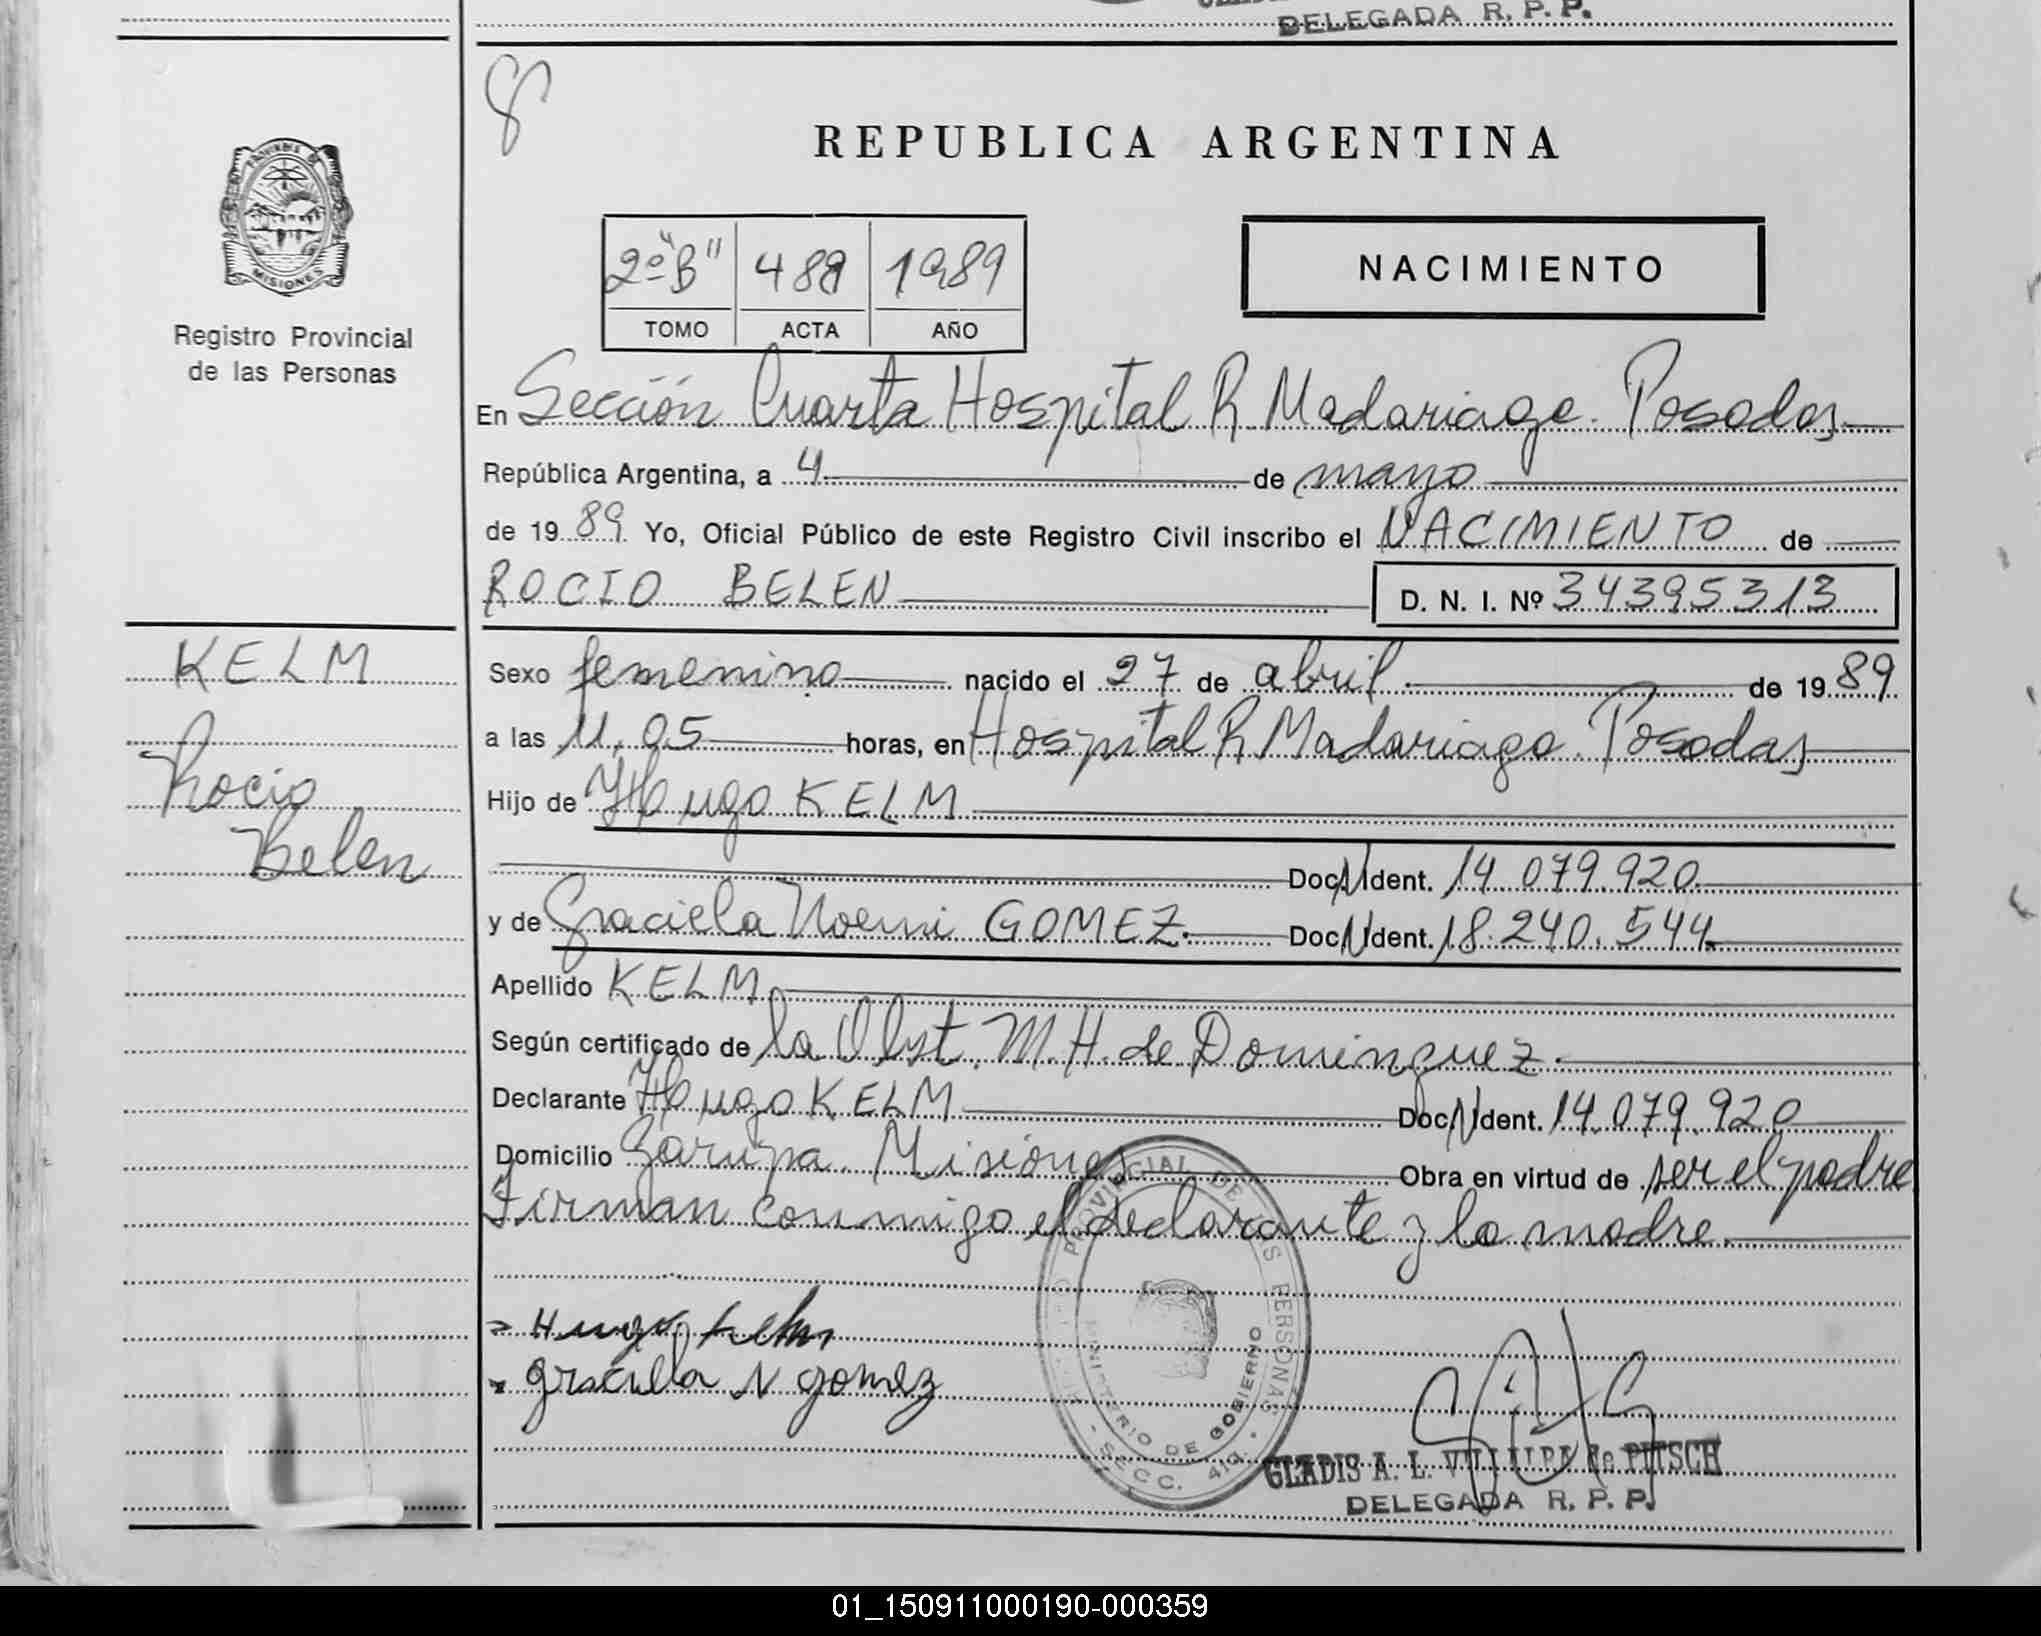 DELEGADA R. P. P.
8
REPUBLICA ARGENTINA
PROVINCIA DE
MISIONES
Registro Provincial
de las Personas
2º "B" 488 1989
TOMO ACTA AÑO
NACIMIENTO
En Sección Cuarta Hospital R Madariaga. Posadas
República Argentina, a 4 de mayo
de 19 89 Yo, Oficial Público de este Registro Civil inscribo el NACIMIENTO de
ROCIO BELEN D. N. I. Nº 34395313
KELM
Rocio
Belen
Sexo femenino nacido el 27 de abril de 19 89
a las 11,05 horas, en Hospital R Madariaga. Posadas
Hijo de Hugo KELM
Doc. N Ident. 14.079.920
y de Graciela Noemi GOMEZ. Doc. N Ident. 18.240.544
Apellido KELM
Según certificado de la Obst. M. H. de Dominguez.
Declarante Hugo KELM Doc. N Ident. 14.079.920
Domicilio Garupa. Misiones Obra en virtud de ser el padre
Firman conmigo el declarante y la madre.
Hugo Kelm
graciela N gomez
PROVINCIAL DE LAS PERSONAS
MINISTERIO DE GOBIERNO
SECC. 4ta.
GLADIS A. L. VILLALBA de PITSCH
DELEGADA R. P. P.
01_150911000190-000359